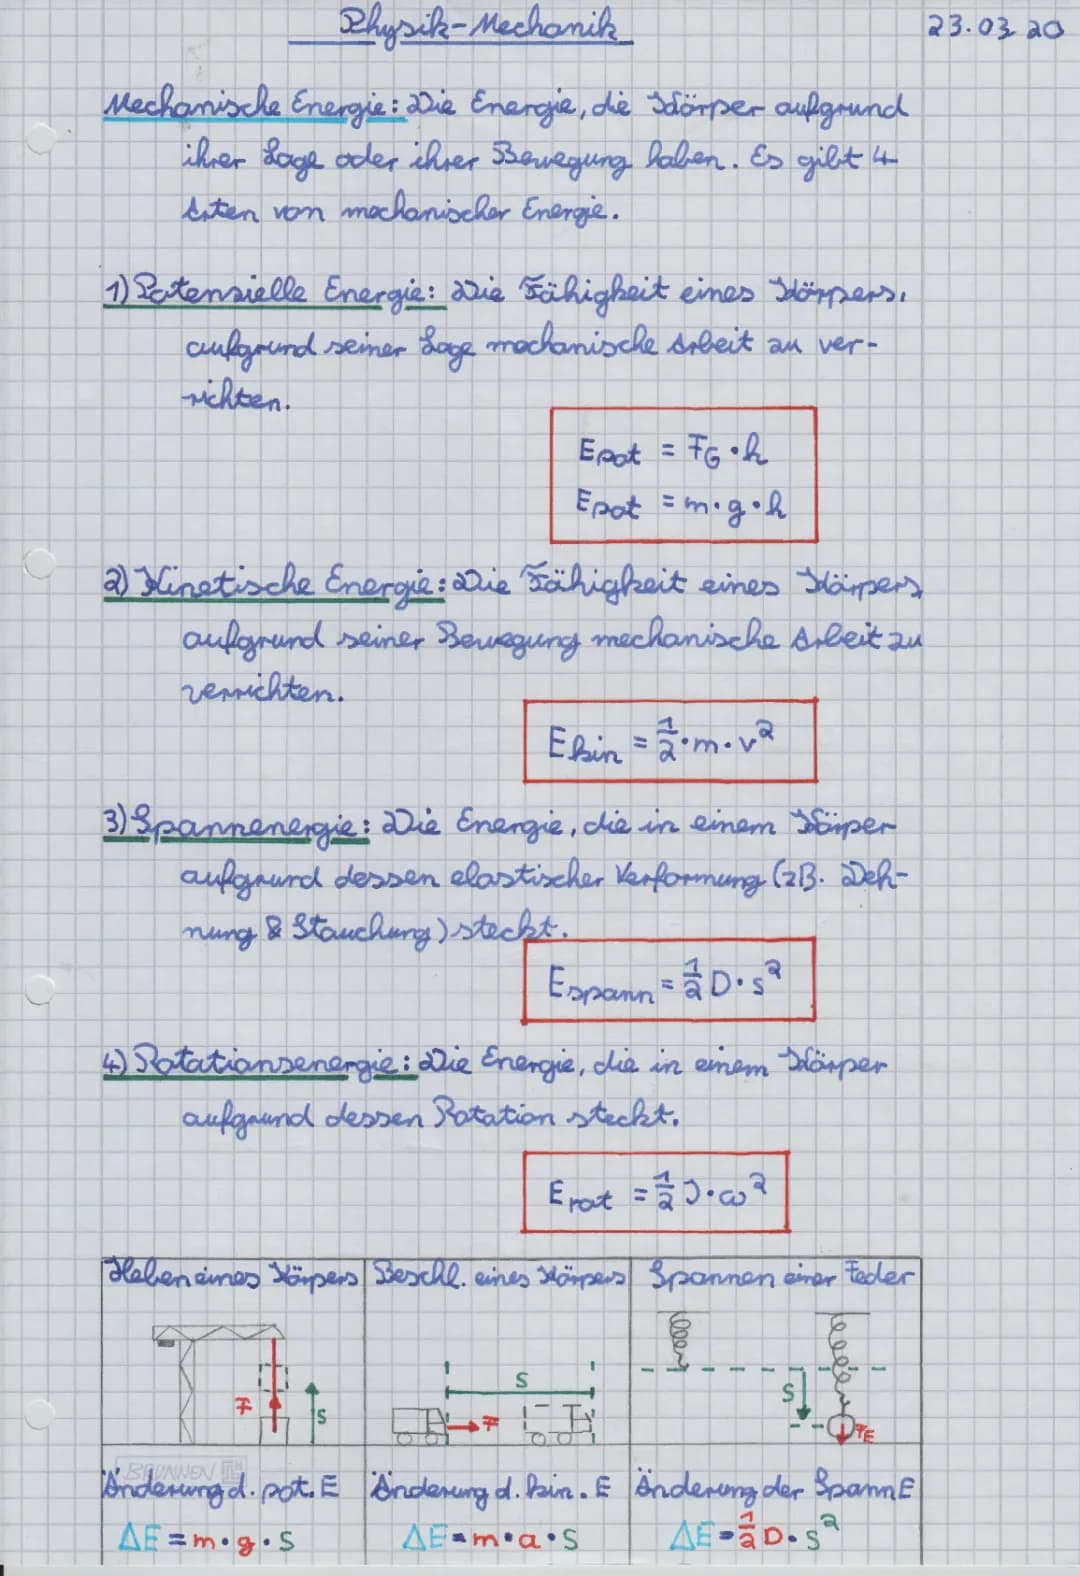 Physik-Mechanik 23.03.20
Mechanische Energie: Die Energie, die Körper aufgrund
ihrer Lage oder ihrer Bewegung haben. Es gibt 4
Arten von mechanischer Energie.
1) Potenzielle Energie: Die Fähigkeit eines Körpers,
aufgrund seiner Lage mechanische Arbeit zu ver-
richten.
Epot = FG • h
Epot = m • g • h
2) Kinetische Energie: Die Fähigkeit eines Körpers,
aufgrund seiner Bewegung mechanische Arbeit zu
verrichten.
Ekin = 1/2 • m • v²
3) Spannenergie: Die Energie, die in einem Körper
aufgrund dessen elastischer Verformung (zB. Deh-
nung & Stauchung) steckt.
Espann = 1/2 D • s²
4) Rotationsenergie: Die Energie, die in einem Körper
aufgrund dessen Rotation steckt.
Erot = 1/2 J • ω²
Heben eines Körpers Beschl. eines Körpers Spannen einer Feder
F s
s F
s FE
BRUNNEN
Änderung d. pot. E Änderung d. kin. E Änderung der Spann E
ΔE = m • g • s ΔE = m • a • s ΔE = 1/2 D • s²